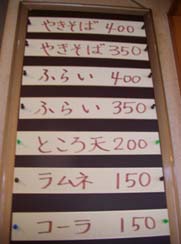 やきそば 400
やきそば 350
ふらい 400
ふらい 350
ところ天 200
ラムネ 150
コーラ 150